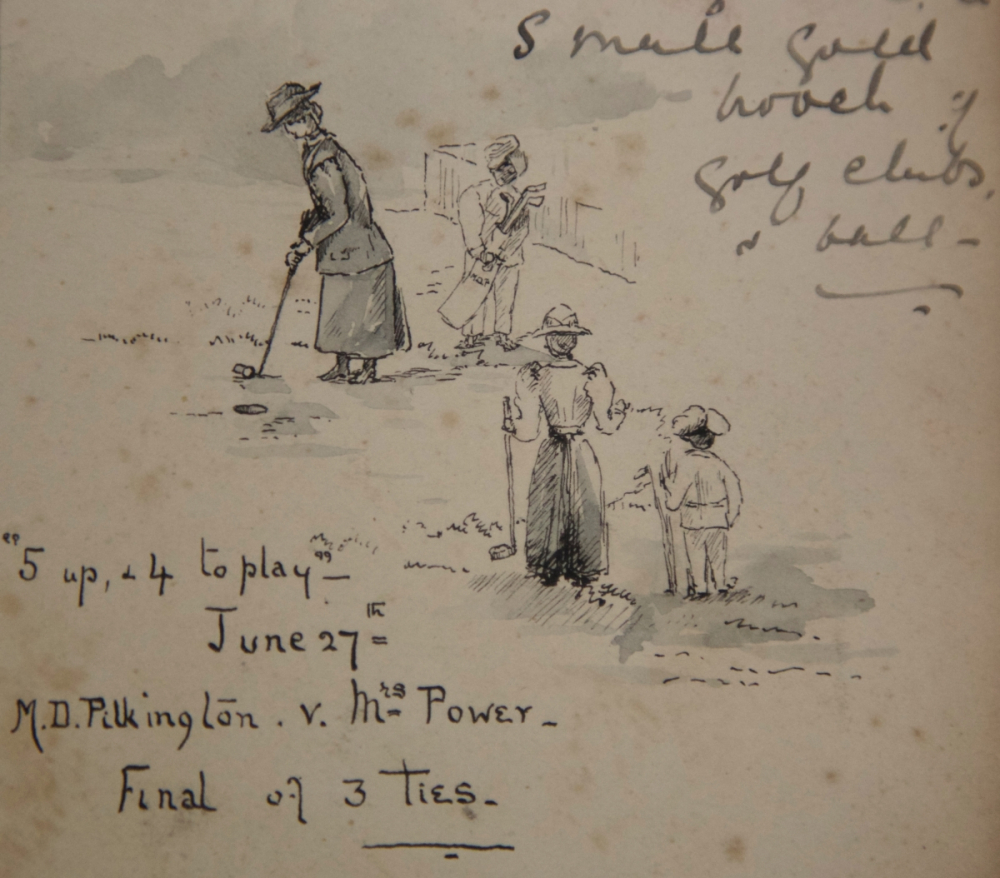 Small gold
brooch of
golf clubs,
& ball -
M.D.P
"5 up, & 4 to play" -
June 27th
M.D. Pilkington . v. Mrs Power -
Final of 3 Ties -